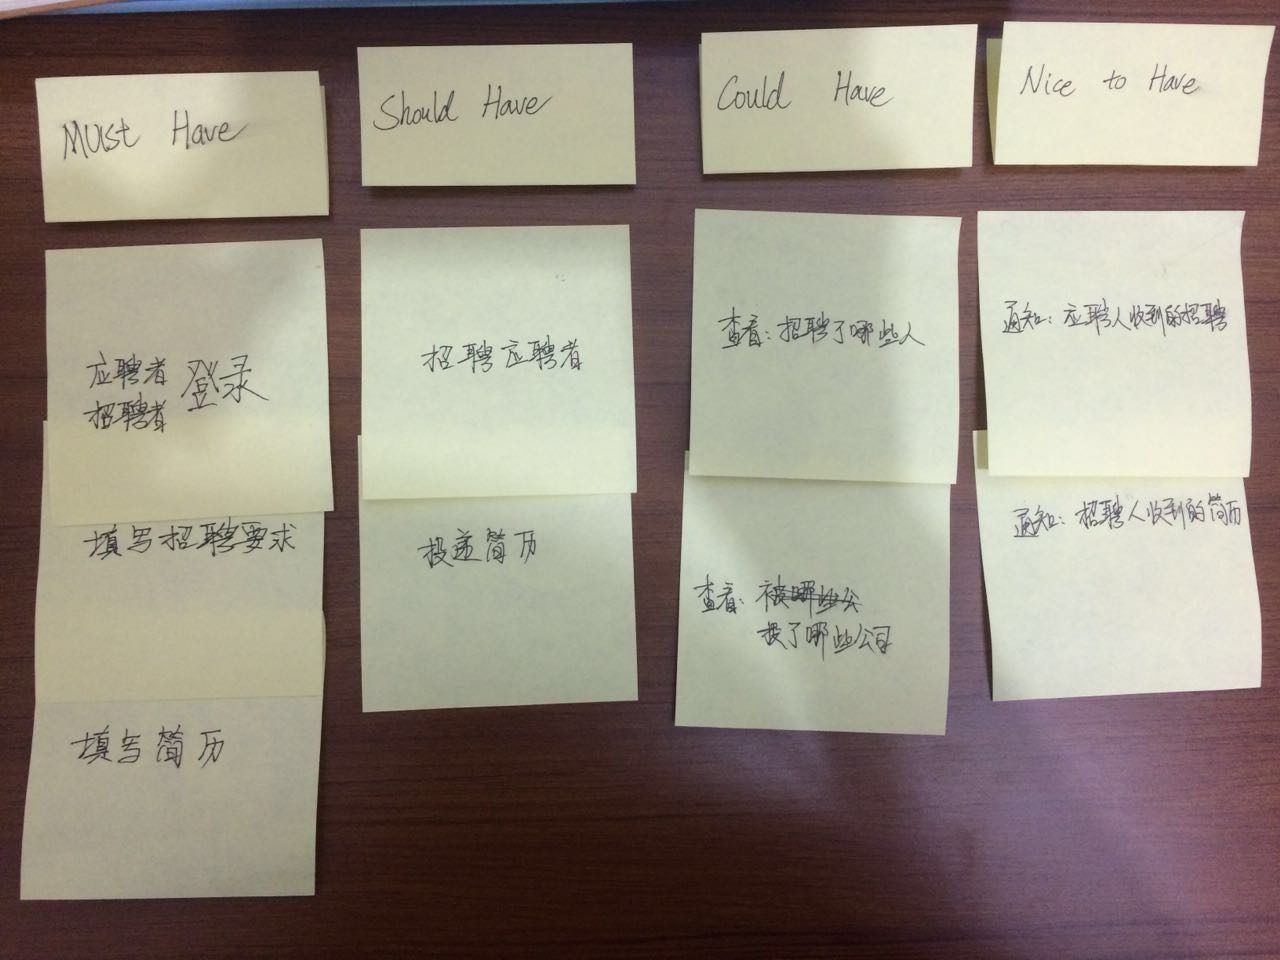 Must Have
应聘者 登录
招聘者
填写招聘要求
填写简历
Should Have
招聘应聘者
投递简历
Could Have
查看：招聘了哪些人
查看：被哪些公
投了哪些公司
Nice to Have
通知：应聘人收到的招聘
通知：招聘人收到的简历